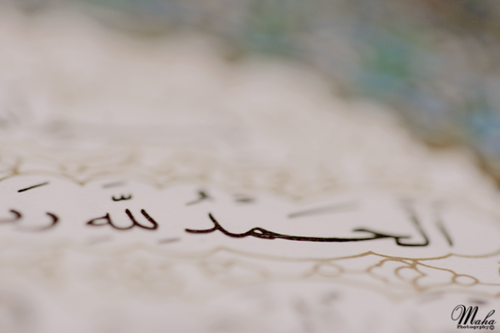 الحمد لله
Maha
Photography©